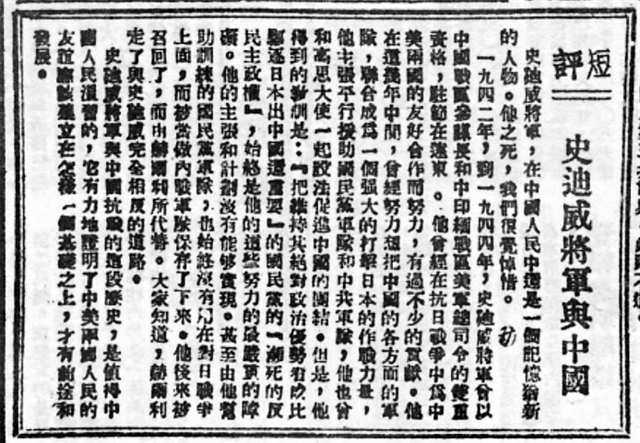 短評
史迪威將軍與中國
史迪威將軍，在中國人民中還是一個記憶猶新
的人物。他之死，我們很覺悼惜。
一九四二年，到一九四四年，史迪威將軍曾以
中國戰區參謀長和中印緬戰區美軍總司令的雙重
資格，駐節在遠東。他曾經在抗日戰爭中爲中
美兩國的友好合作而努力，有過不少的貢獻。他
在這幾年中間，曾經努力想把中國的各方面的軍
隊，聯合成爲一個强大的打擊日本的作戰力量，
他主張平行援助國民黨軍隊和中共軍隊，他也曾
和高思大使一起設法促進中國的團結。但是，他
得到的教訓是：『把維持其絕對政治優勢看成比
驅逐日本出中國還重要』的國民黨的『瀕死的反
民主政權』，始終是他的這些努力的最嚴重的障
礙。他的主張和計劃沒有能夠實現。甚至由他幫
助訓練的國民黨軍隊，也始終沒有用在對日戰爭
上面，而被當做內戰軍隊保存了下來。他後來被
召回了，而由赫爾利所代替。大家知道，赫爾利
走了與史迪威完全相反的道路。
史迪威將軍與中國抗戰的這段歷史，是值得中
國人民溫習的，它有力地證明了中美兩國人民的
友誼應該建立在怎樣一個基礎之上，才有前途和
發展。